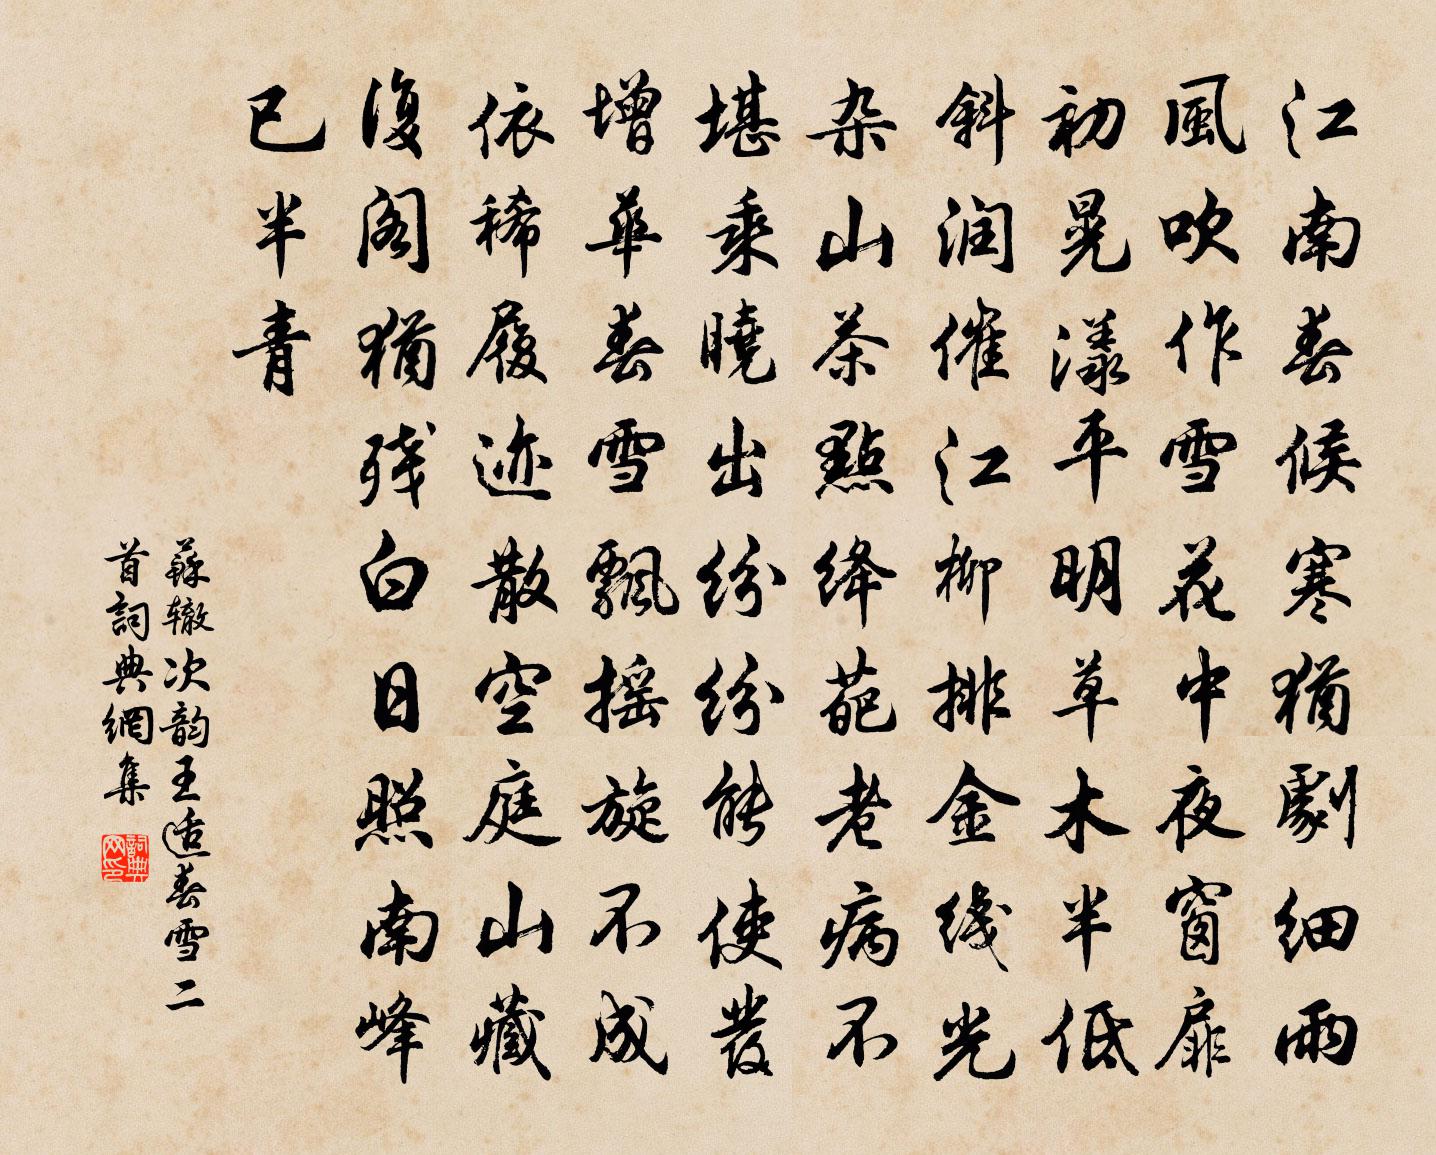 江南春候寒猶劇細雨
風吹作雪花中夜窗扉
初晃漾平明草木半低
斜润催江柳排金綫光
杂山茶點絳葩老病不
堪乘曉出紛紛能使發
增華春雪飄搖旋不成
依稀履迹散空庭山藏
復阁猶残白日照南峰
已半青
蘇辙次韵王适春雪二
首詞典網集
詞典网印